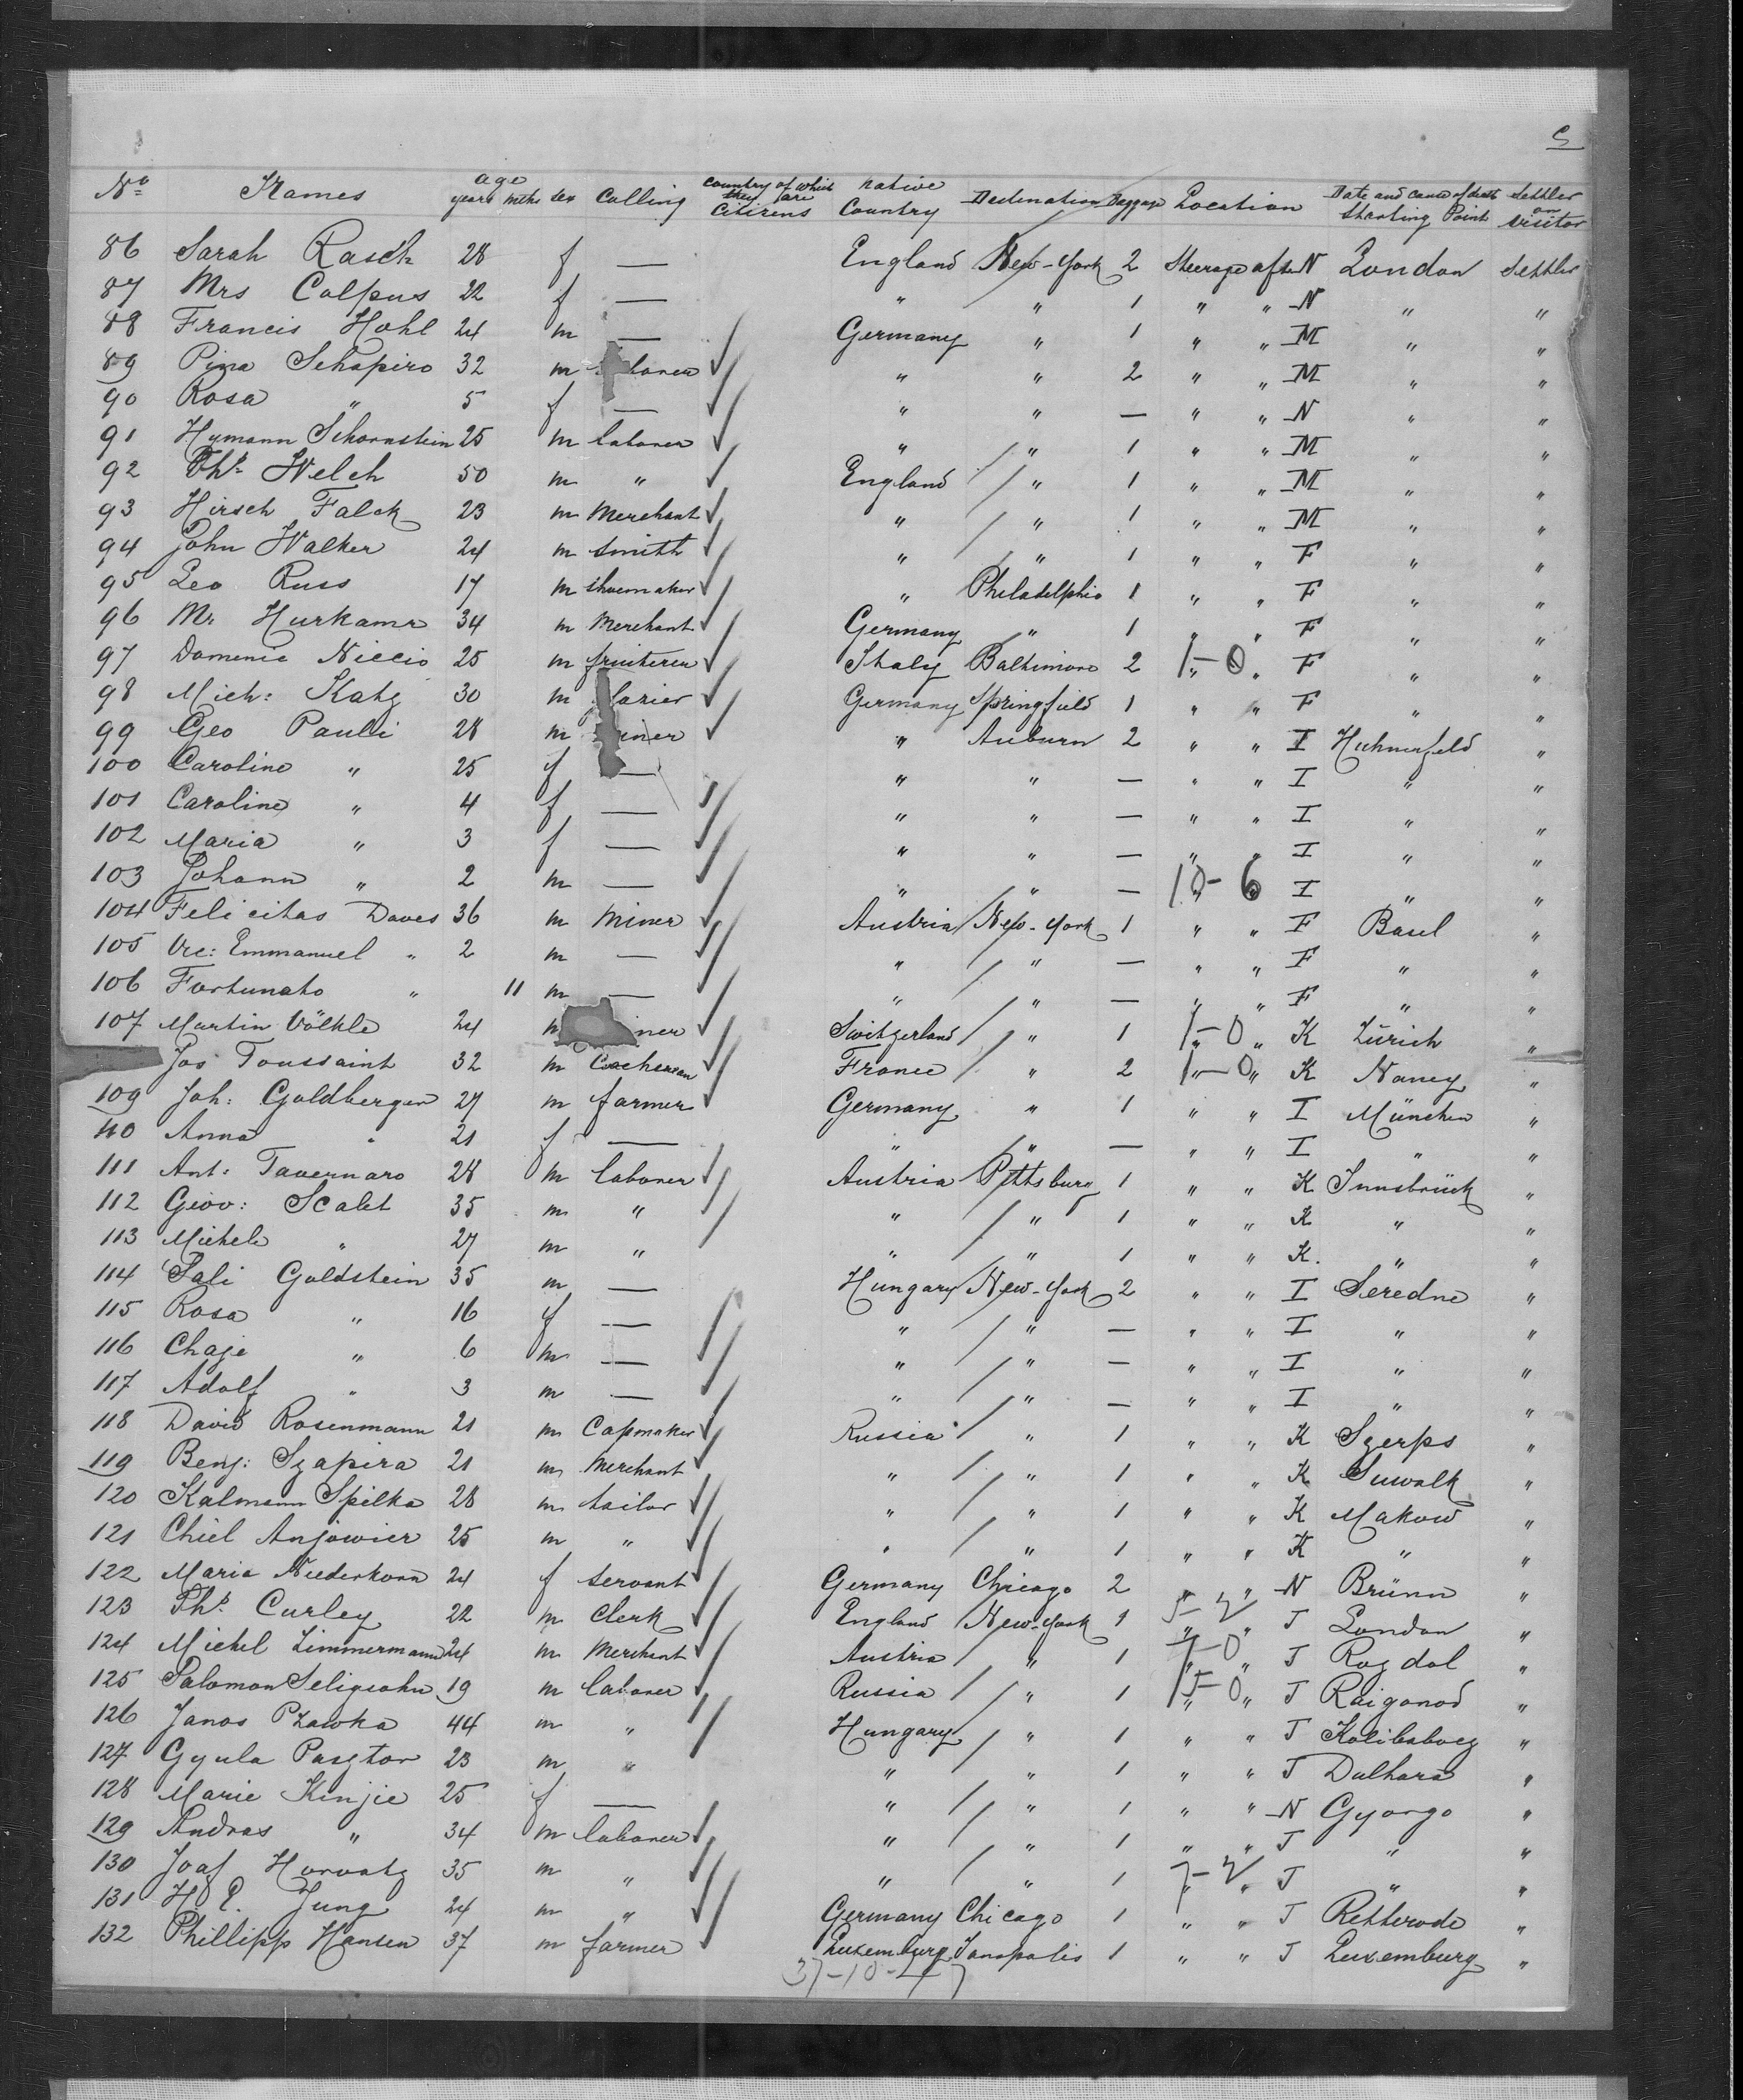 5
No Names age years mths sex Calling Country of which they are Citizens native Country Destination Baggage Location Date and cause of death Starting Point Settler or visitor
86 Sarah Rasch 28 f — England New-York 2 Steerage after N London Settler
87 Mrs Colpus 22 f — " " 1 " " N " "
88 Francis Hohl 24 m — Germany " 1 " " M " "
89 Pina Schapiro 32 m laborer " " 2 " " M " "
90 Rosa " 5 f — " " — " " N " "
91 Hymann Schornstein 25 m laborer " " 1 " " M " "
92 Ths Welch 50 m " England " 1 " " M " "
93 Hirsch Falck 23 m Merchant " " 1 " " M " "
94 John Walker 24 m Smith " " 1 " " F " "
95 Leo Russ 17 m Shoemaker " Philadelphia 1 " " F " "
96 Mr Hurkamr 34 m Merchant Germany " 1 " " F " "
97 Domenic Niccio 25 m fruiterer Italy Baltimore 2 1-0 " " F " "
98 Mich: Katz 30 m glazier Germany Springfield 1 " " F " "
99 Geo Pauli 28 m miner " Auburn 2 " " I Huhnerfeld "
100 Caroline " 25 f — " " — " " I " "
101 Caroline " 4 f — " " — " " I " "
102 Maria " 3 f — " " — " " I " "
103 Johann " 2 m — " " — 10-6 " I " "
104 Felicitas Daves 36 m Miner Austria New-York 1 " " F Basel "
105 Vic: Emmanuel " 2 m — " " — " " F " "
106 Fortunato " 11 m — " " — " " F " "
107 Martin Völkle 24 m ner Switzerland " 1 1-0 " " K Zürich "
Jos Toussaint 32 m Coachman France " 2 1-0 " " K Nancy "
109 Joh: Goldberger 27 m farmer Germany " 1 " " I München "
110 Anna " 21 f — " " — " " I " "
111 Ant: Tavernaro 28 m laborer Austria Pittsburg 1 " " K Innsbrück "
112 Giov: Scalet 35 m " " " 1 " " K " "
113 Michele " 27 m " " " 1 " " K. " "
114 Sali Goldstein 35 m — Hungary New-York 2 " " I Seredne "
115 Rosa " 16 f — " " — " " I " "
116 Chaje " 6 m — " " — " " I " "
117 Adolf " 3 m — " " — " " I " "
118 David Rosenmann 21 m Capmaker Russia " 1 " " K Szerps "
119 Benj: Szapira 21 m Merchant " " 1 " " K Suwalk "
120 Kalmann Spilka 28 m tailor " " 1 " " K Makow "
121 Chiel Anjowier 25 m " " " 1 " " K " "
122 Maria Niederkorn 24 f Servant Germany Chicago 2 " " N Brünn "
123 Ths Curley 22 m Clerk England New-York 1 " " J London "
124 Michel Zimmermann 24 m Merchant Austria " 1 " " J Rogdol "
125 Salomon Seligsohn 19 m laborer Russia " 1 15-0 " " J Raigonod "
126 Janos Pzawka 44 m " Hungary " 1 " " J "
127 Gyula Pasztor 23 m " " " 1 " " J Dalhara "
128 Marie Kinjie 25 f — " " 1 " " N Gyorgo "
129 Andras " 34 m laborer " " 1 " " J " "
130 Joaf Horvatz 35 m " " " 1 " " J " "
131 H. P. Jung 24 m " Germany Chicago 1 " " J Retterode "
132 Phillipp Hansen 37 m farmer Luxemburg Janapolis 1 " " J Luxemburg "